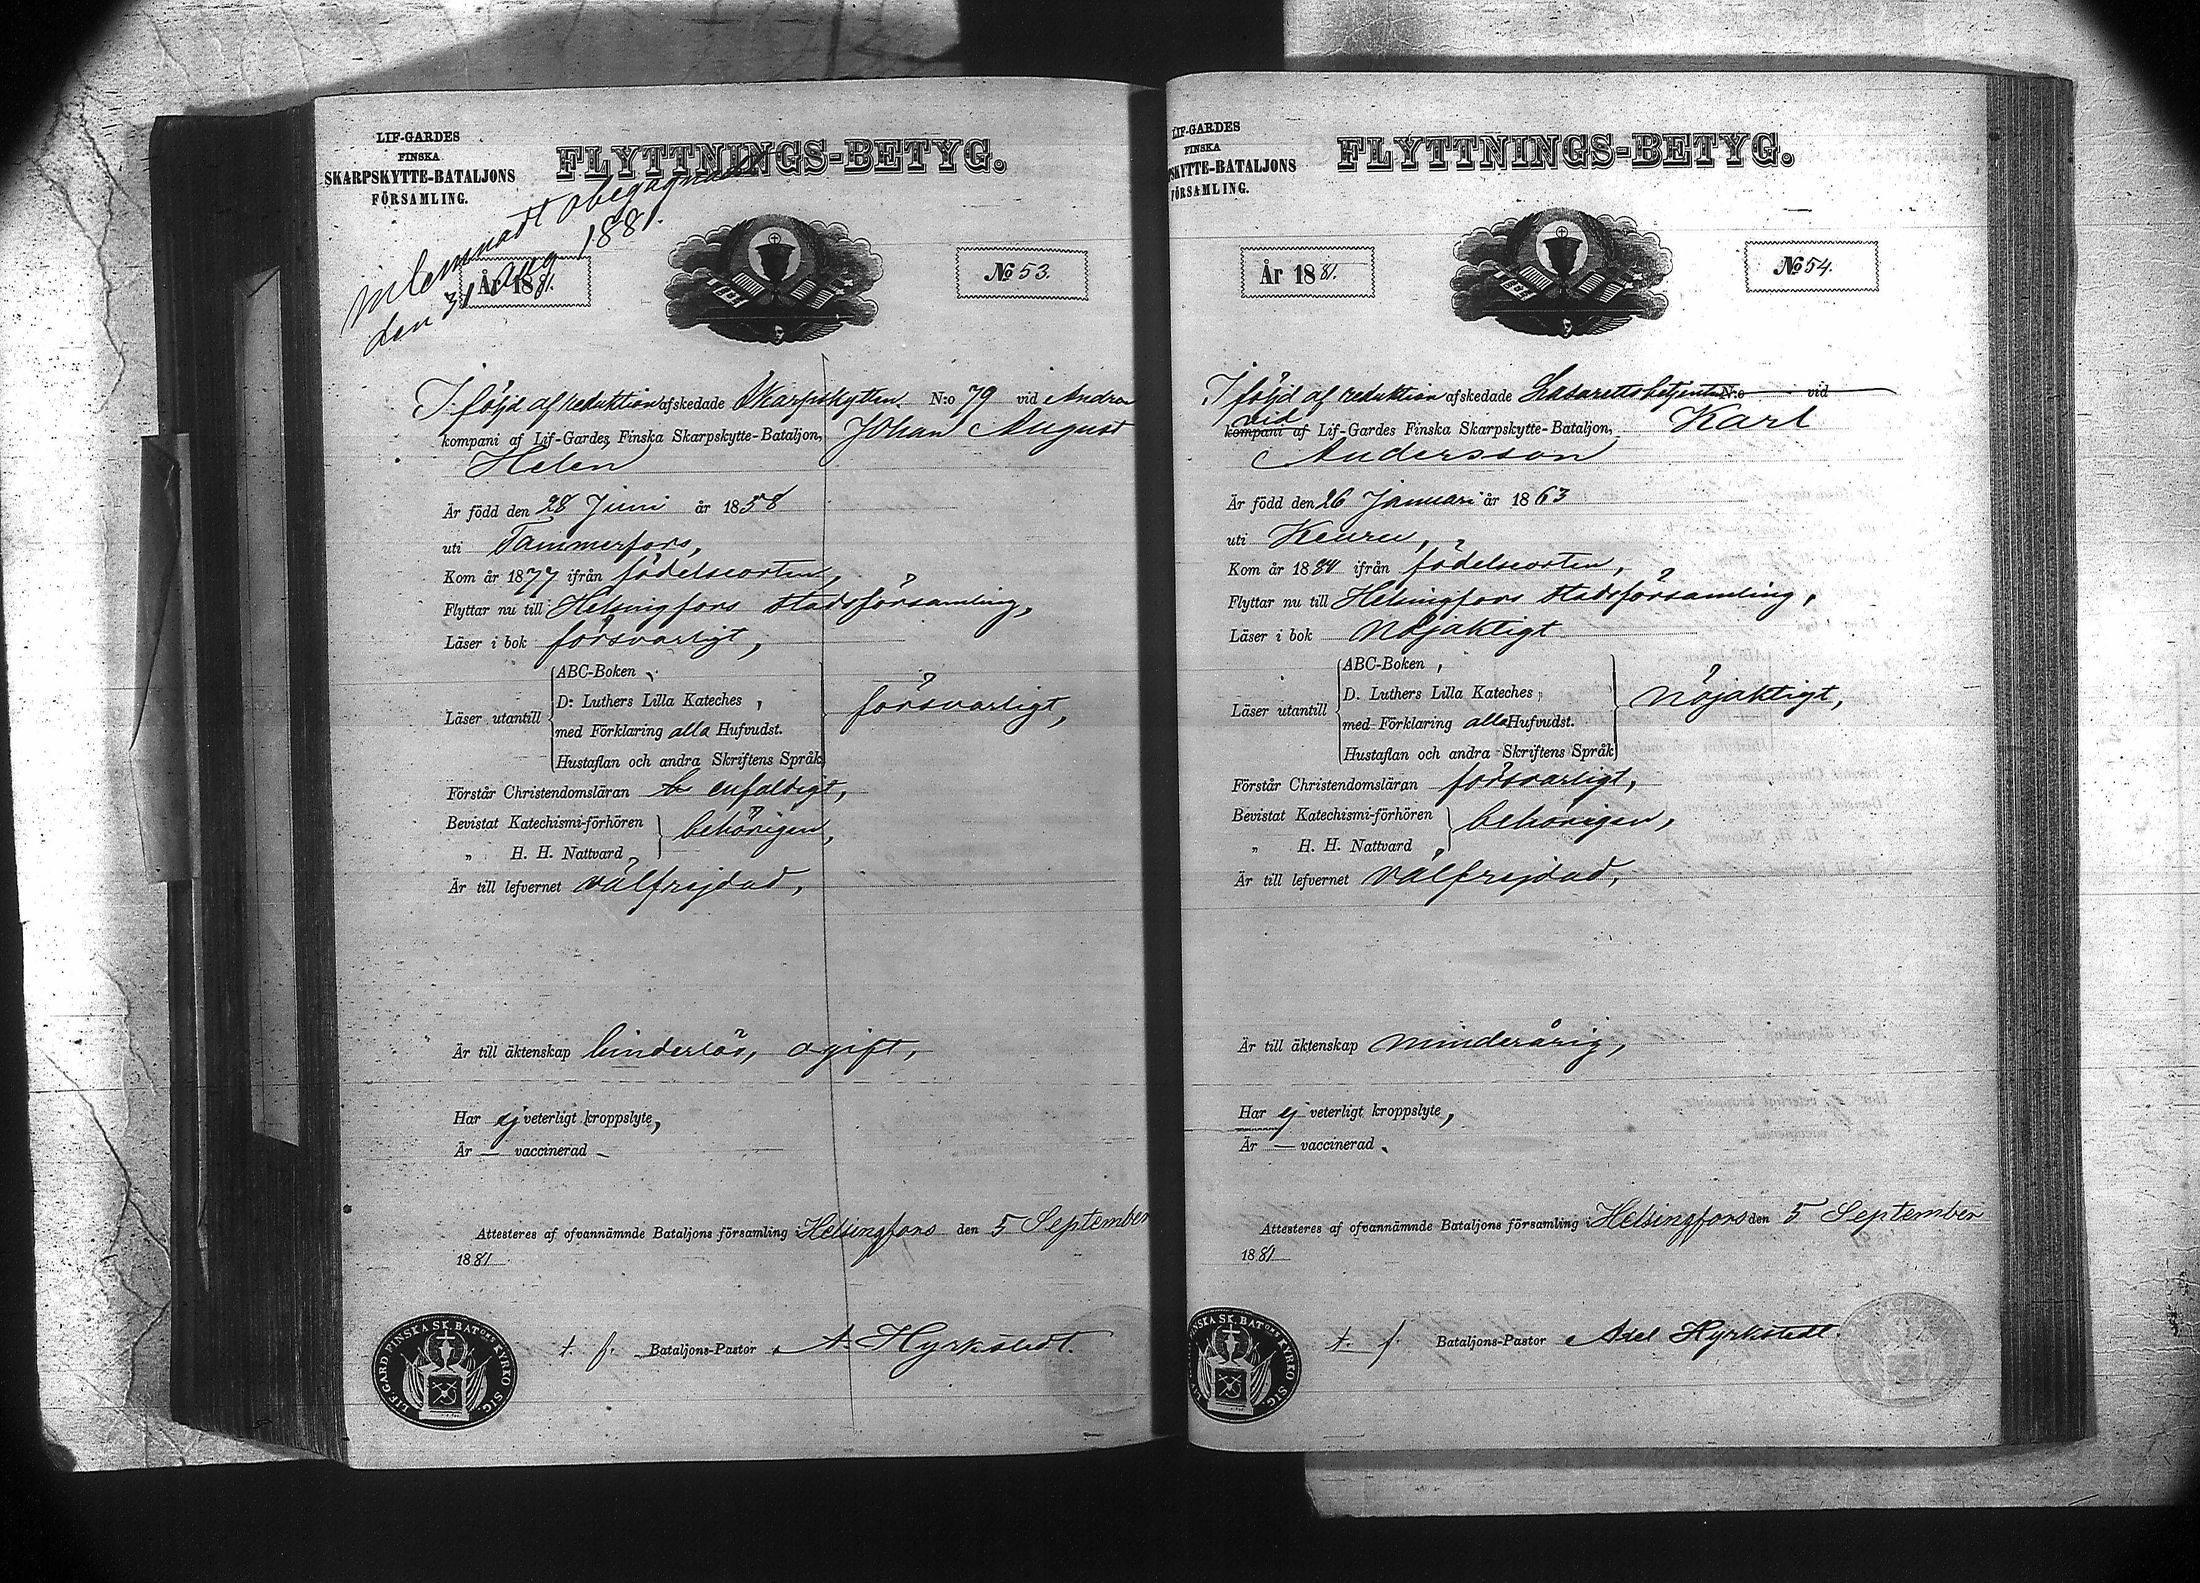 LIF-GARDES
FINSKA
SKARPSKYTTE-BATALJONS
FÖRSAMLING.
FLYTTNINGS-BETYG.
inlemnadt obegagnadt
den 31 Aug 1881.
År 1881.
No 53.
I följd af reduktion afskedade Skarpskytten N:o 79 vid Andra
kompani af Lif-Gardes Finska Skarpskytte-Bataljon, Johan August
Helen
Är född den 28 Juni år 1858
uti Tammerfors,
Kom år 1877 ifrån födelseorten,
Flyttar nu till Helsingfors stadsförsamling,
Läser i bok försvarligt,
Läser utantill
ABC-Boken,
D: Luthers Lilla Kateches,
med Förklaring alla Hufvudst.
Hustaflan och andra Skriftens Språk
försvarligt,
Förstår Christendomsläran enfaldigt,
Bevistat Katechismi-förhören
„ H. H. Nattvard,
behörigen,
Är till lefvernet välfrejdad,
Är till äktenskap hinderlös, ogift,
Har ej veterligt kroppslyte,
Är — vaccinerad —
Attesteres af ofvannämnde Bataljons församling i Helsingfors den 5 September
1881
t. f. Bataljons-Pastor A. Hyrkstedt.
LIF-GARD FINSKA SK. BATONS KYRKO SIG.
LIF-GARDES
FINSKA
SKYTTE-BATALJONS
FÖRSAMLING.
FLYTTNINGS-BETYG.
År 1881.
No 54.
I följd af reduktion afskedade Lasarettsbetjenten N:o vid
vid
kompani af Lif-Gardes Finska Skarpskytte-Bataljon, Karl
Andersson
Är född den 26 Januari år 1863
uti Keuru,
Kom år 1881 ifrån födelseorten,
Flyttar nu till Helsingfors stadsförsamling,
Läser i bok Nöjaktigt
Läser utantill
ABC-Boken,
D. Luthers Lilla Kateches,
med Förklaring alla Hufvudst.
Hustaflan och andra Skriftens Språk
Nöjaktigt,
Förstår Christendomsläran försvarligt,
Bevistat Katechismi-förhören
„ H. H. Nattvard,
behörigen,
Är till lefvernet Välfrejdad,
Är till äktenskap minderårig,
Har ej veterligt kroppslyte,
Är — vaccinerad.
Attesteres af ofvannämnde Bataljons församling i Helsingfors den 5 September
1881
t. f. Bataljons-Pastor Axel Hyrkstedt.
FINSKA SK. BATONS KYRKO SIG.